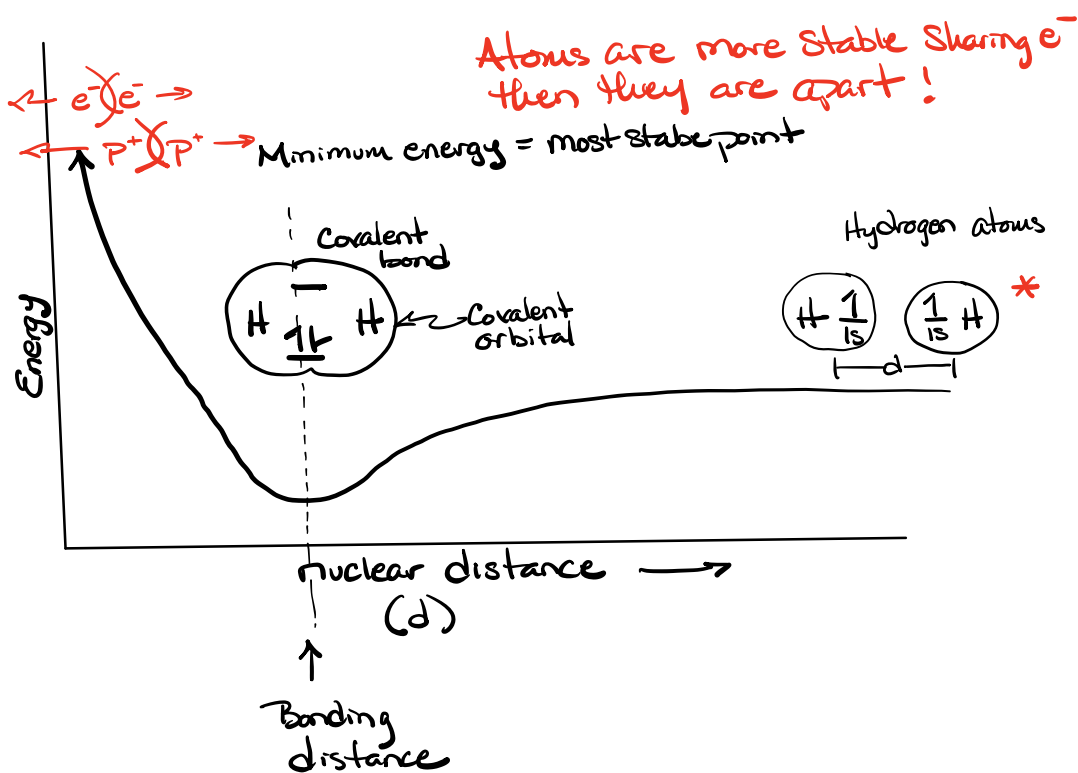 Atoms are more stable sharing e⁻
then they are apart!
e⁻ e⁻
p⁺ p⁺
Minimum energy = most stabe point
Covalent
bond
H 1L H
Covalent
orbital
Hydrogen atoms
H 1 1 H *
1s 1s
d
Energy
nuclear distance →
(d)
Bonding
distance